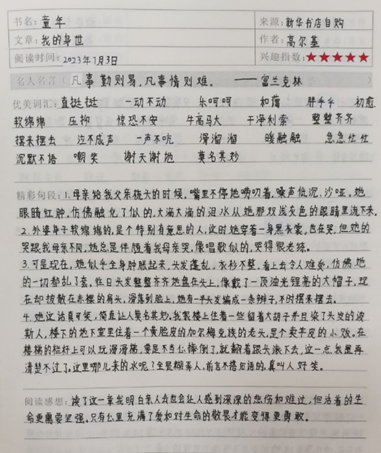 书名：童年
来源：新华书店自购
文章：我的身世
作者：高尔基
阅读时间：2023年1月3日
兴趣指数：★★★★★
名人名言（凡事勤则易，凡事惰则难。——富兰克林
优美词汇：直挺挺 一动不动 乐呵呵 和蔼 胖乎乎 初愈
软绵绵 压抑 惶恐不安 牛高马大 干净利索 整整齐齐
摆来摆去 泣不成声 一声不吭 滑溜溜 暖融融 急急忙忙
沉默不语 嘲笑 谢天谢地 莫名其妙
精彩句段：1.母亲给我父亲梳头的时候，嘴里不停地唠叨着，嗓声低沉、沙哑，她
眼睛红肿，仿佛融化了似的，大滴大滴的泪水从她那双浅灰色的眼睛里流下来。
2.外婆身子软绵绵的，是个特别有意思的人，这时她穿着一身黑衣裳，也在哭，但她的
哭跟我母亲不同，她总是伴随着我母亲哭，像唱歌似的，哭得很老练。
3.可是现在，她似乎全身肿胀起来，头发蓬乱，衣衫不整，看上去令人难受，仿佛她
的一切都乱了套，往日头发整整齐齐地盘在头上，像戴了一顶油光锃亮的大帽子，现
在却披散在赤裸的肩头，滑落到脸上，她有一半头发编成一条辫子，不时摆来摆去。
4.她说话真可笑，简直让人莫名其妙，我家楼上住着一些留着大胡子并且染了头发的波
斯人，楼下的地下室里住着一个黄脸皮的加尔梅克族的老头，是个卖羊皮的小贩。在
楼梯的栏杆上可以玩滑滑梯，要是不当心摔倒了，就翻着跟头滚下去，这一点我是再
清楚不过了。这里哪儿来的水呢？全是糊弄人，前言不搭后语的，真叫人好笑。
阅读感想：读了这一章我明白亲人去世会让人感到深深的悲伤和难过，但活着的生
命更需要坚强，只有心里充满了爱和对生命的敬畏才能变得更勇敢。